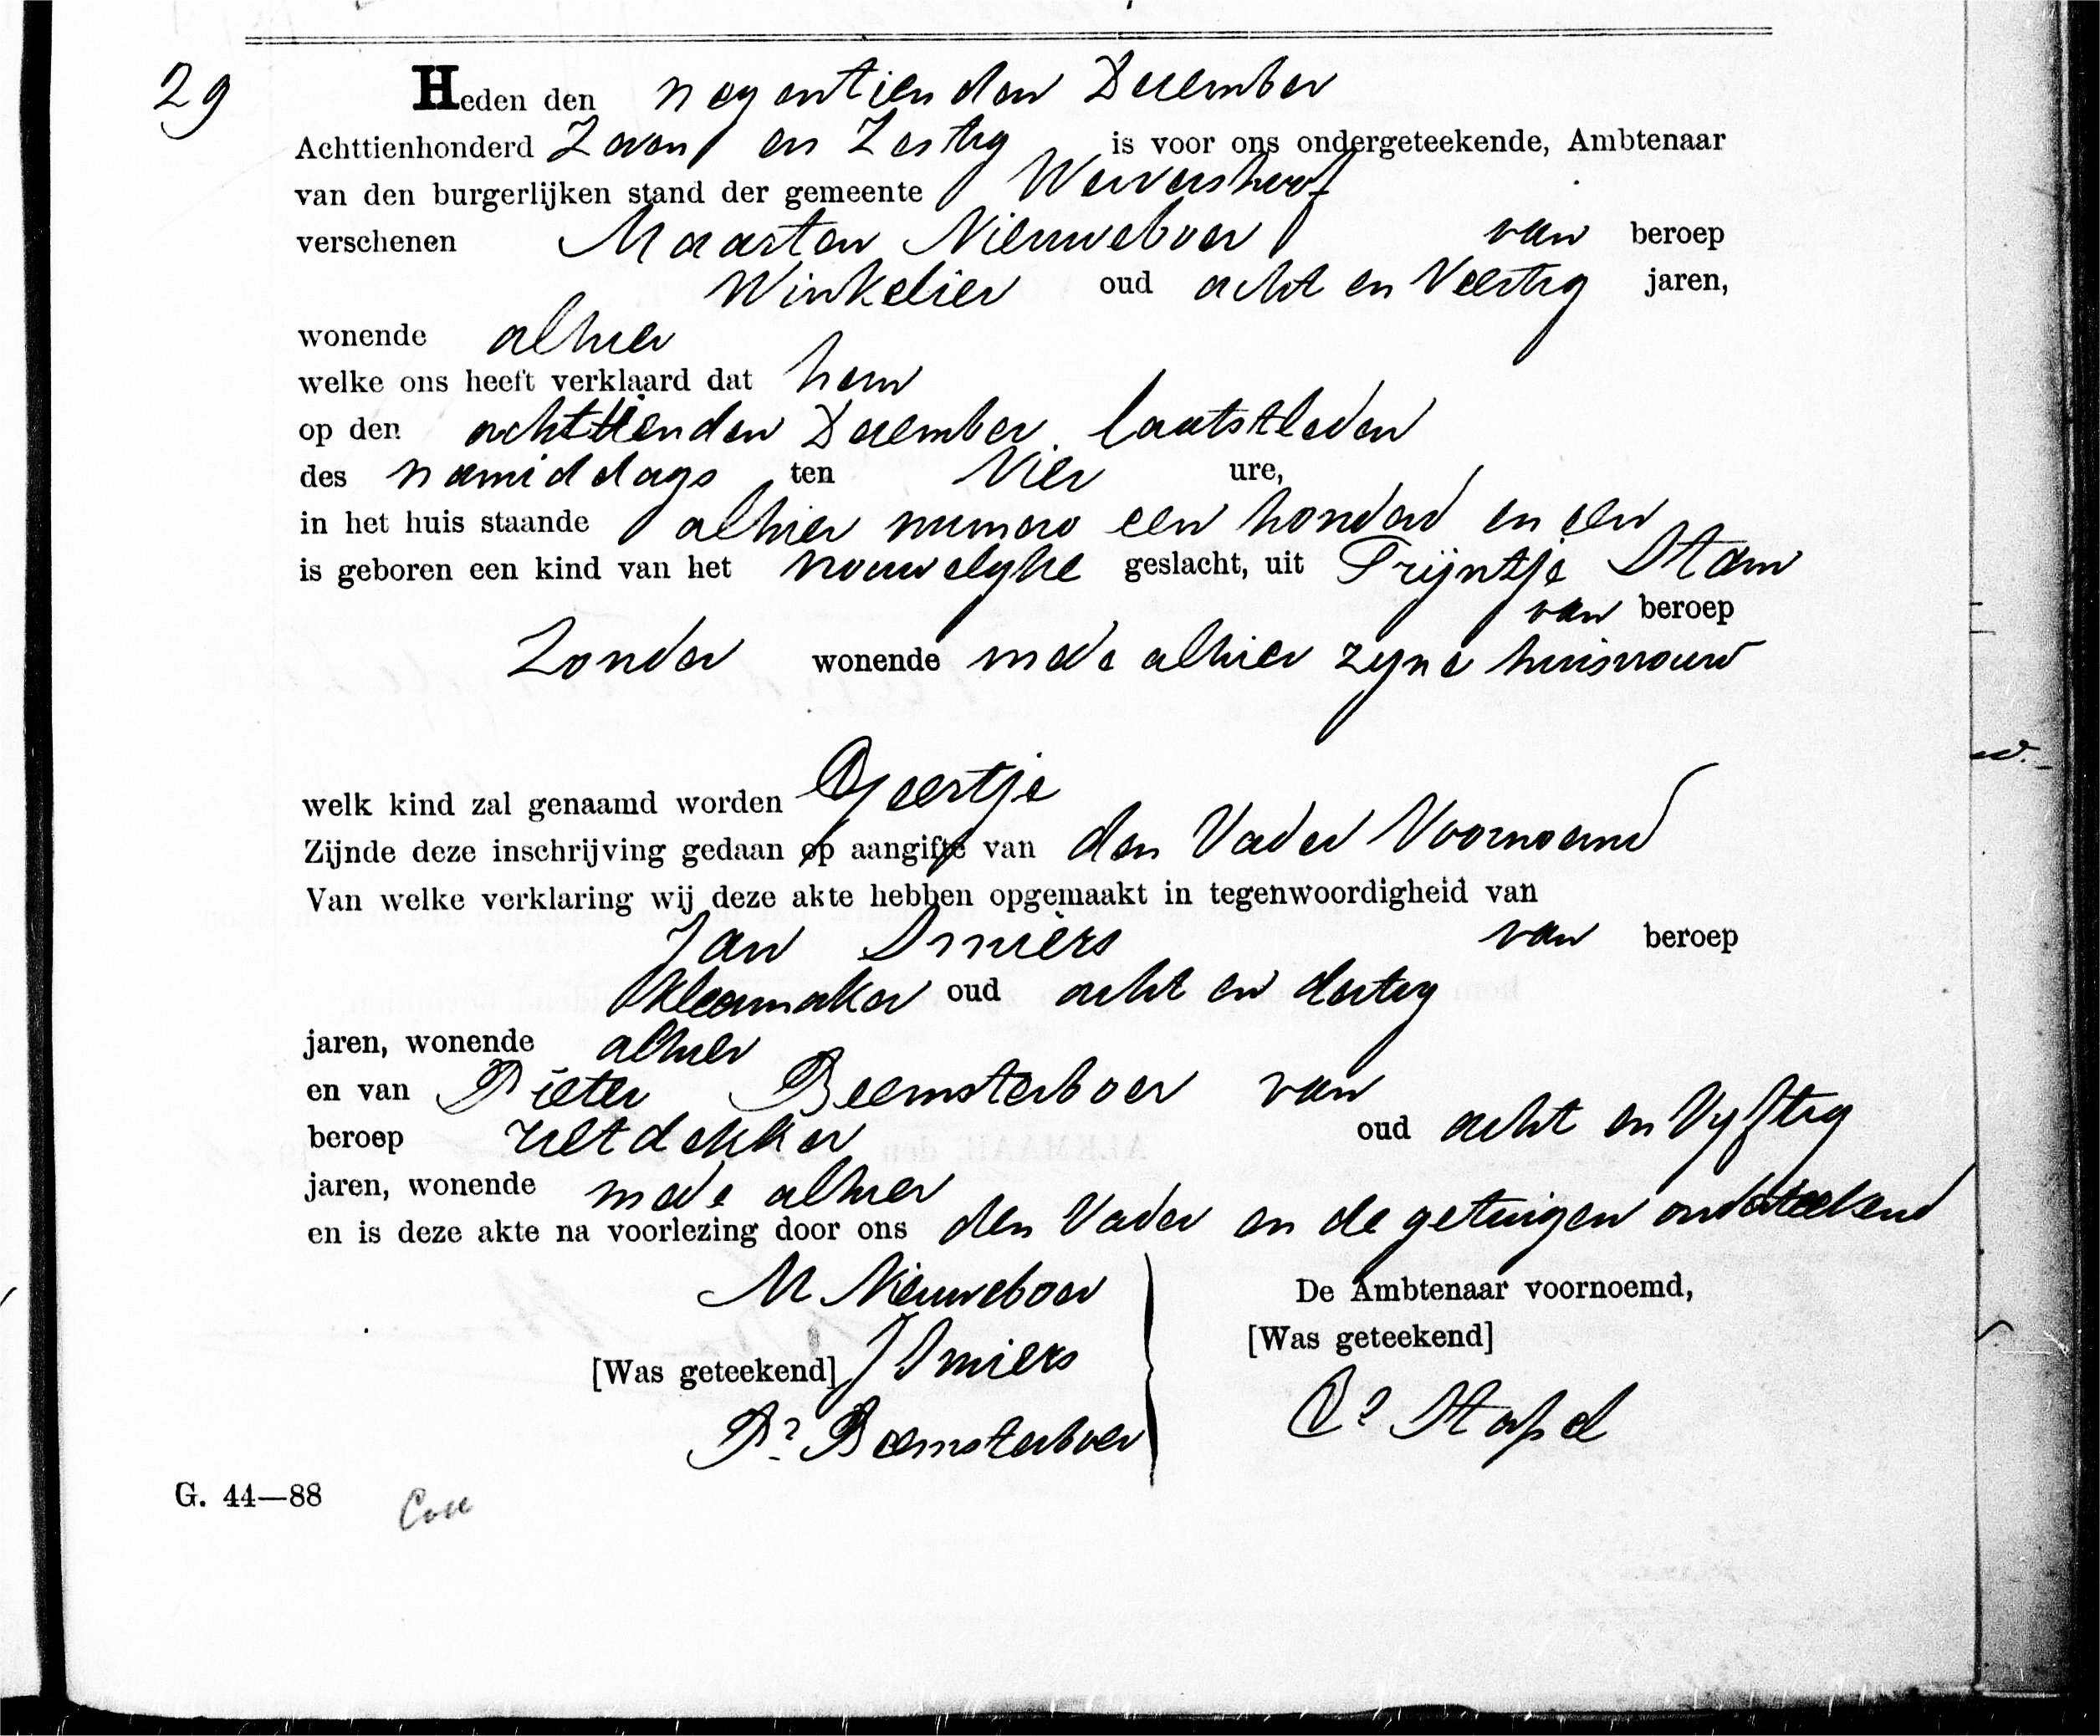 29
Heden den negentienden December
Achttienhonderd Zeven en Zestig is voor ons ondergeteekende, Ambtenaar
van den burgerlijken stand der gemeente Wervershoof
verschenen Maarten Nieuweboer van beroep
Winkelier oud acht en Veertig jaren,
wonende alhier
welke ons heeft verklaard dat hem
op den achttienden December laatstleden
des namiddags ten Vier ure,
in het huis staande alhier numero een honderd en een
is geboren een kind van het vrouwelyke geslacht, uit Trijntje Stam
van beroep
Zonder wonende mede alhier zyne huisvrouw
welk kind zal genaamd worden Geertje
Zijnde deze inschrijving gedaan op aangifte van den Vader Voornoemd
Van welke verklaring wij deze akte hebben opgemaakt in tegenwoordigheid van
Jan Smiers van beroep
kleermaker oud acht en dertig
jaren, wonende alhier
en van Pieter Beemsterboer van
beroep rietdekker oud acht en Vyftig
jaren, wonende mede alhier
en is deze akte na voorlezing door ons den Vader en de getuigen onderteekend
M Nieuweboer
De Ambtenaar voornoemd,
[Was geteekend]
[Was geteekend] J Smiers
Pr Beemsterboer
Cs Stapel
G. 44—88